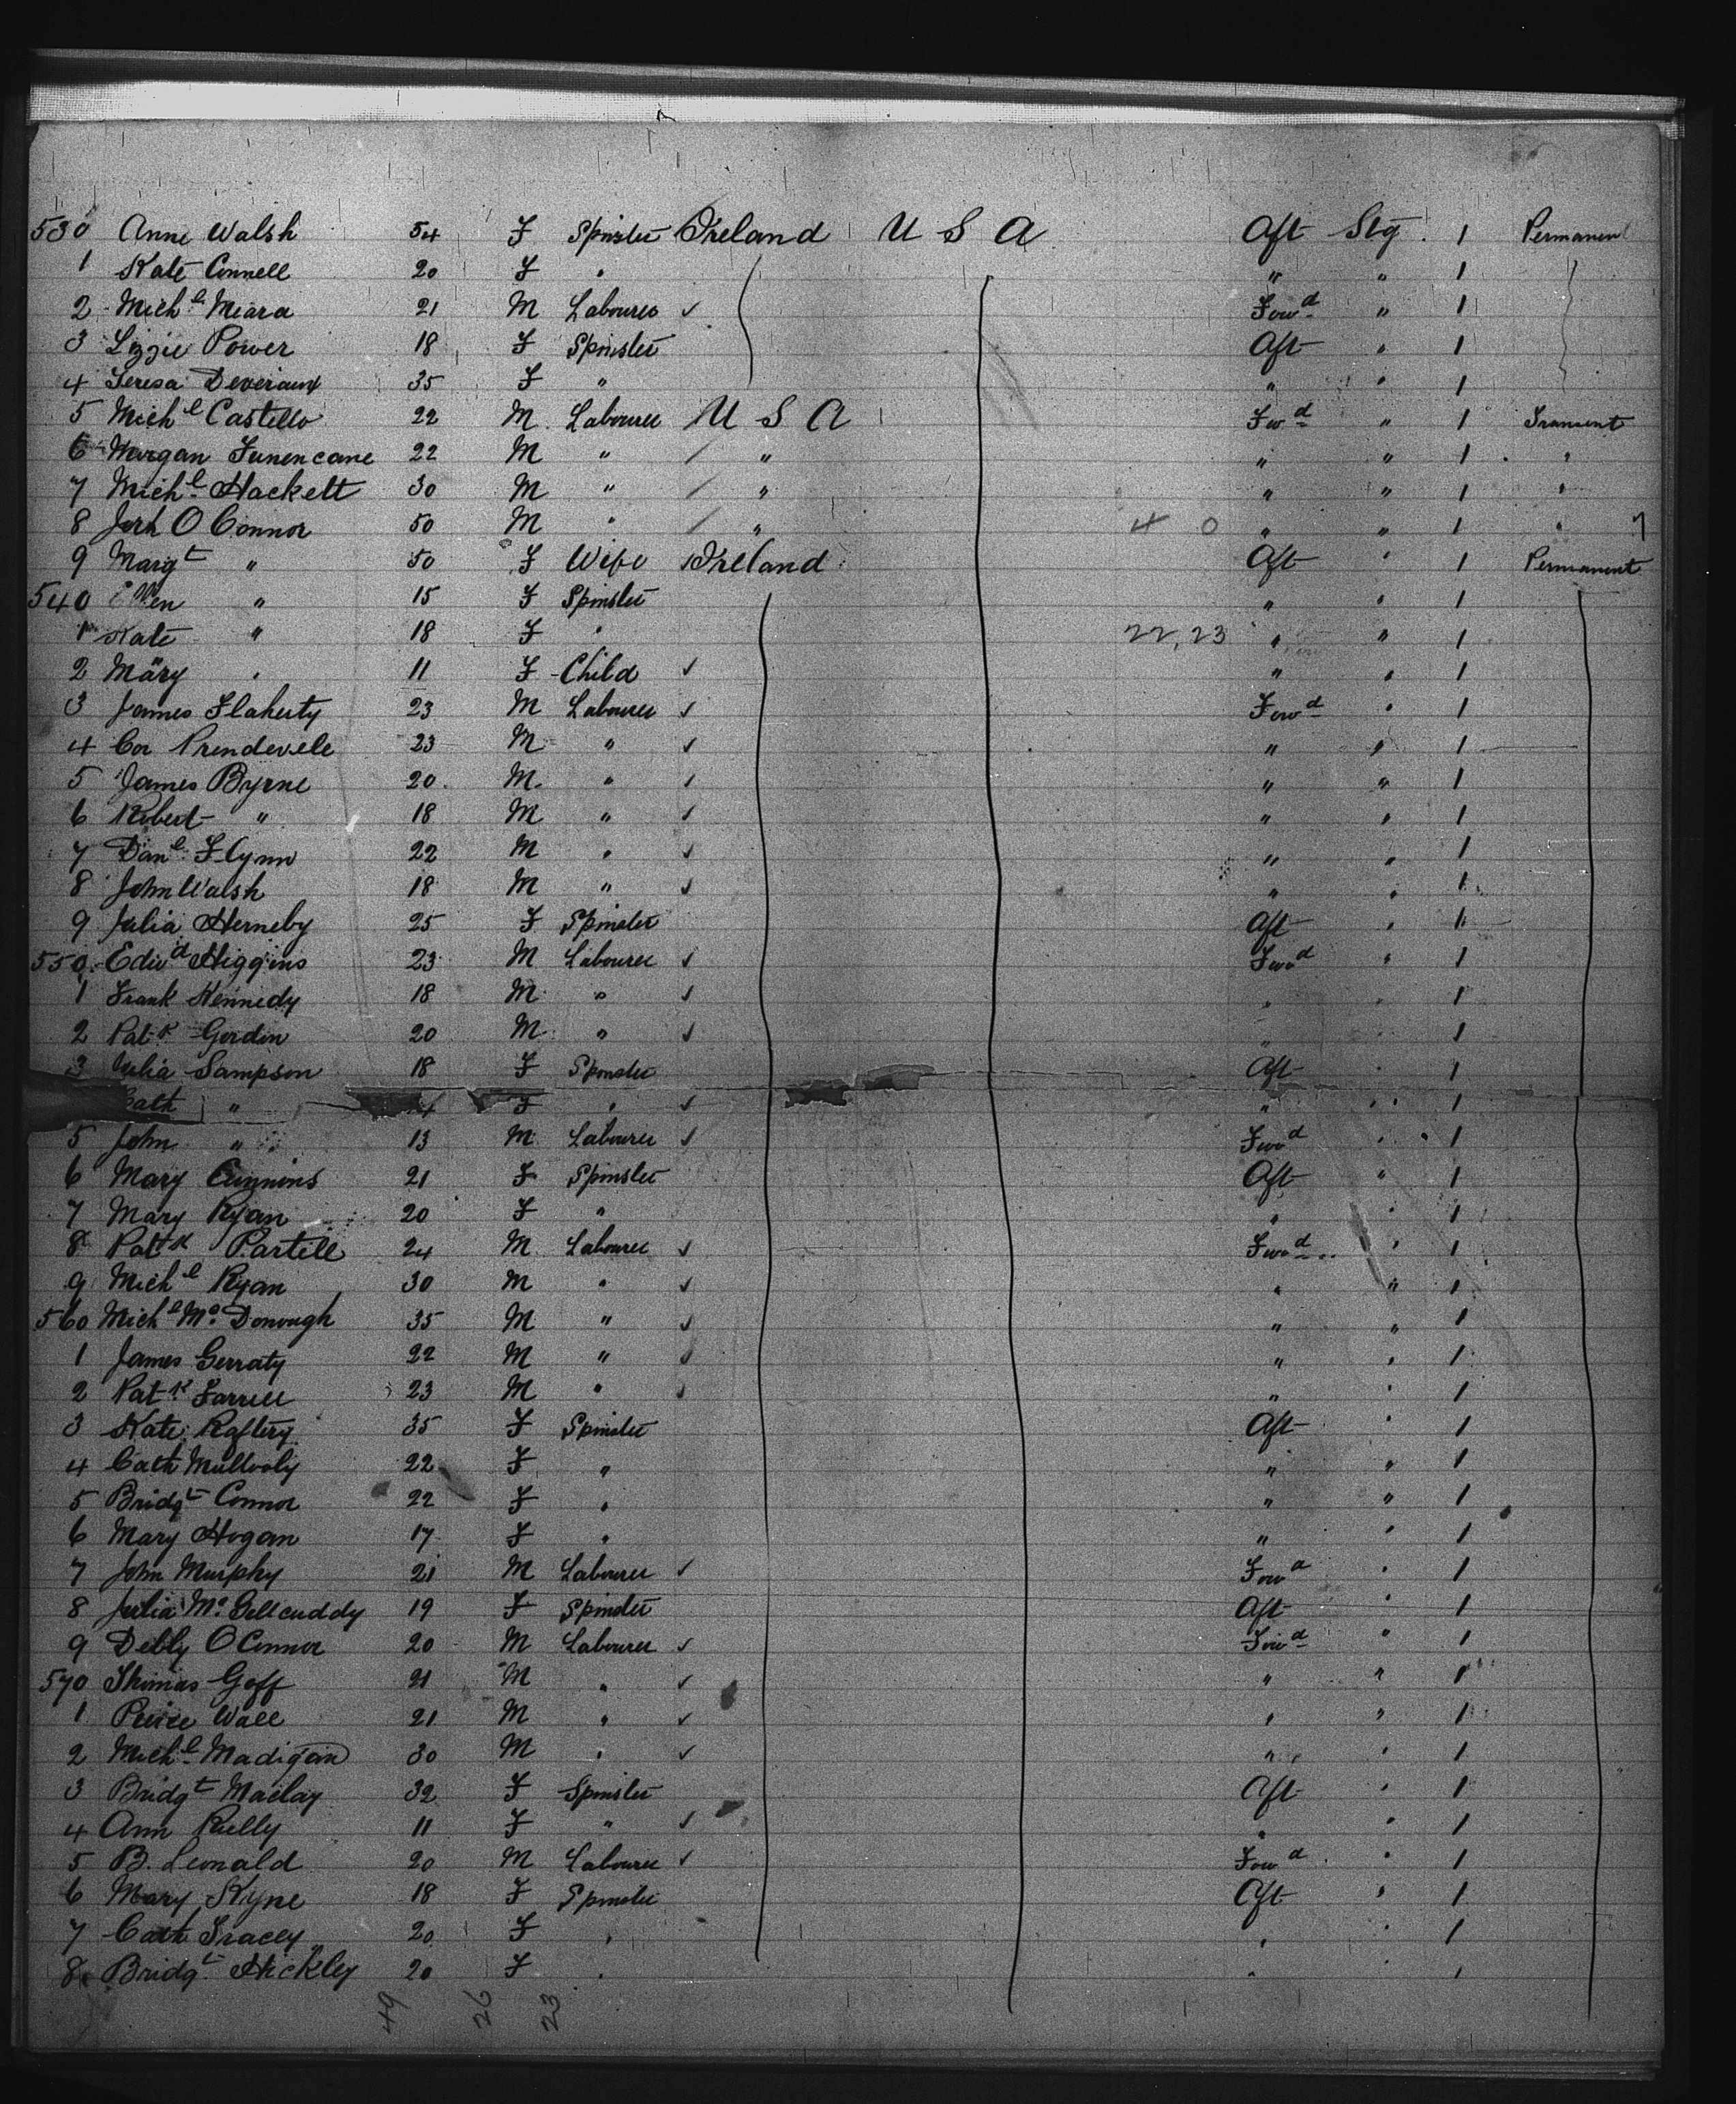 530 Anne Walsh 54 F Spinster Ireland U S A Aft Stg. 1 Permanent
1 Kate Connell 20 F " " " 1
2 Mich.l Meara 21 M Labourer ✓ Fow.d " 1
3 Lizzie Power 18 F Spinster Aft " 1
4 Teresa Deveraux 35 F " " " 1
5 Mich.l Castello 22 M Labourer U S A Fw.d " 1 Transient
6 Morgan 22 M " / " " " 1 "
7 Mich.l Hackett 30 M " / " " " 1 "
8 Jerh O Connor 50 M " / " 4 0 " " 1 "
9 Margt " 50 F Wife Ireland Aft " 1 Permanent
540 Ellen " 15 F Spinster " " 1
1 Kate " 18 F " 22,23 " " 1
2 Mary " 11 F Child ✓ " " 1
3 James Flaherty 23 M Labourer ✓ Fow.d " 1
4 Cor Prendevele 23 M " ✓ " " 1
5 James Byrne 20 M " ✓ " " 1
6 Robert " 18 M " ✓ " " 1
7 Dan.l Flynn 22 M " ✓ " " 1
8 John Walsh 18 M " ✓ " " 1
9 Julia Herneby 25 F Spinster Aft " 1
550 Edw.d Higgins 23 M Labourer ✓ Fwd " 1
1 Frank Kennedy 18 M " ✓ " " 1
2 Pat.k Gordon 20 M " ✓ " " 1
3 Julia Sampson 18 F Spinster Aft " 1
Cath " F " ✓ " " 1
5 John " 13 M Labourer ✓ Fwd " 1
6 Mary Cummins 21 F Spinster Aft " 1
7 Mary Ryan 20 F " " " 1
8 Pat.k Partill 24 M Labourer ✓ Fwd " 1
9 Mich.l Ryan 30 M " ✓ " " 1
560 Mich.l Mc Donough 35 M " ✓ " " 1
1 James Gerraty 22 M " ✓ " " 1
2 Pat.k Farrell 23 M " ✓ " " 1
3 Kate Raftery 35 F Spinster Aft " 1
4 Cath Mullooly 22 F " " " 1
5 Bridgt Connor 22 F " " " 1
6 Mary Hogan 17 F " " " 1
7 John Murphy 21 M Labourer ✓ Fowd " 1
8 Julia Mc Gellcuddy 19 F Spinster Aft " 1
9 Debly O Connor 20 M Labourer ✓ Fowd " 1
570 Thomas Goff 21 M " ✓ " " 1
1 Peirce Wall 21 M " ✓ " " 1
2 Mich.l Madigan 30 M " ✓ " " 1
3 Bridgt Maclay 32 F Spinster Aft " 1
4 Ann Reilly 11 F " ✓ " " 1
5 B. Leonald 20 M Labourer ✓ Fowd " 1
6 Mary Kyne 18 F Spinster Aft " 1
7 Cath Tracey 20 F " " " 1
8 Bridgt Hickley 20 F " " 1
49 26 23